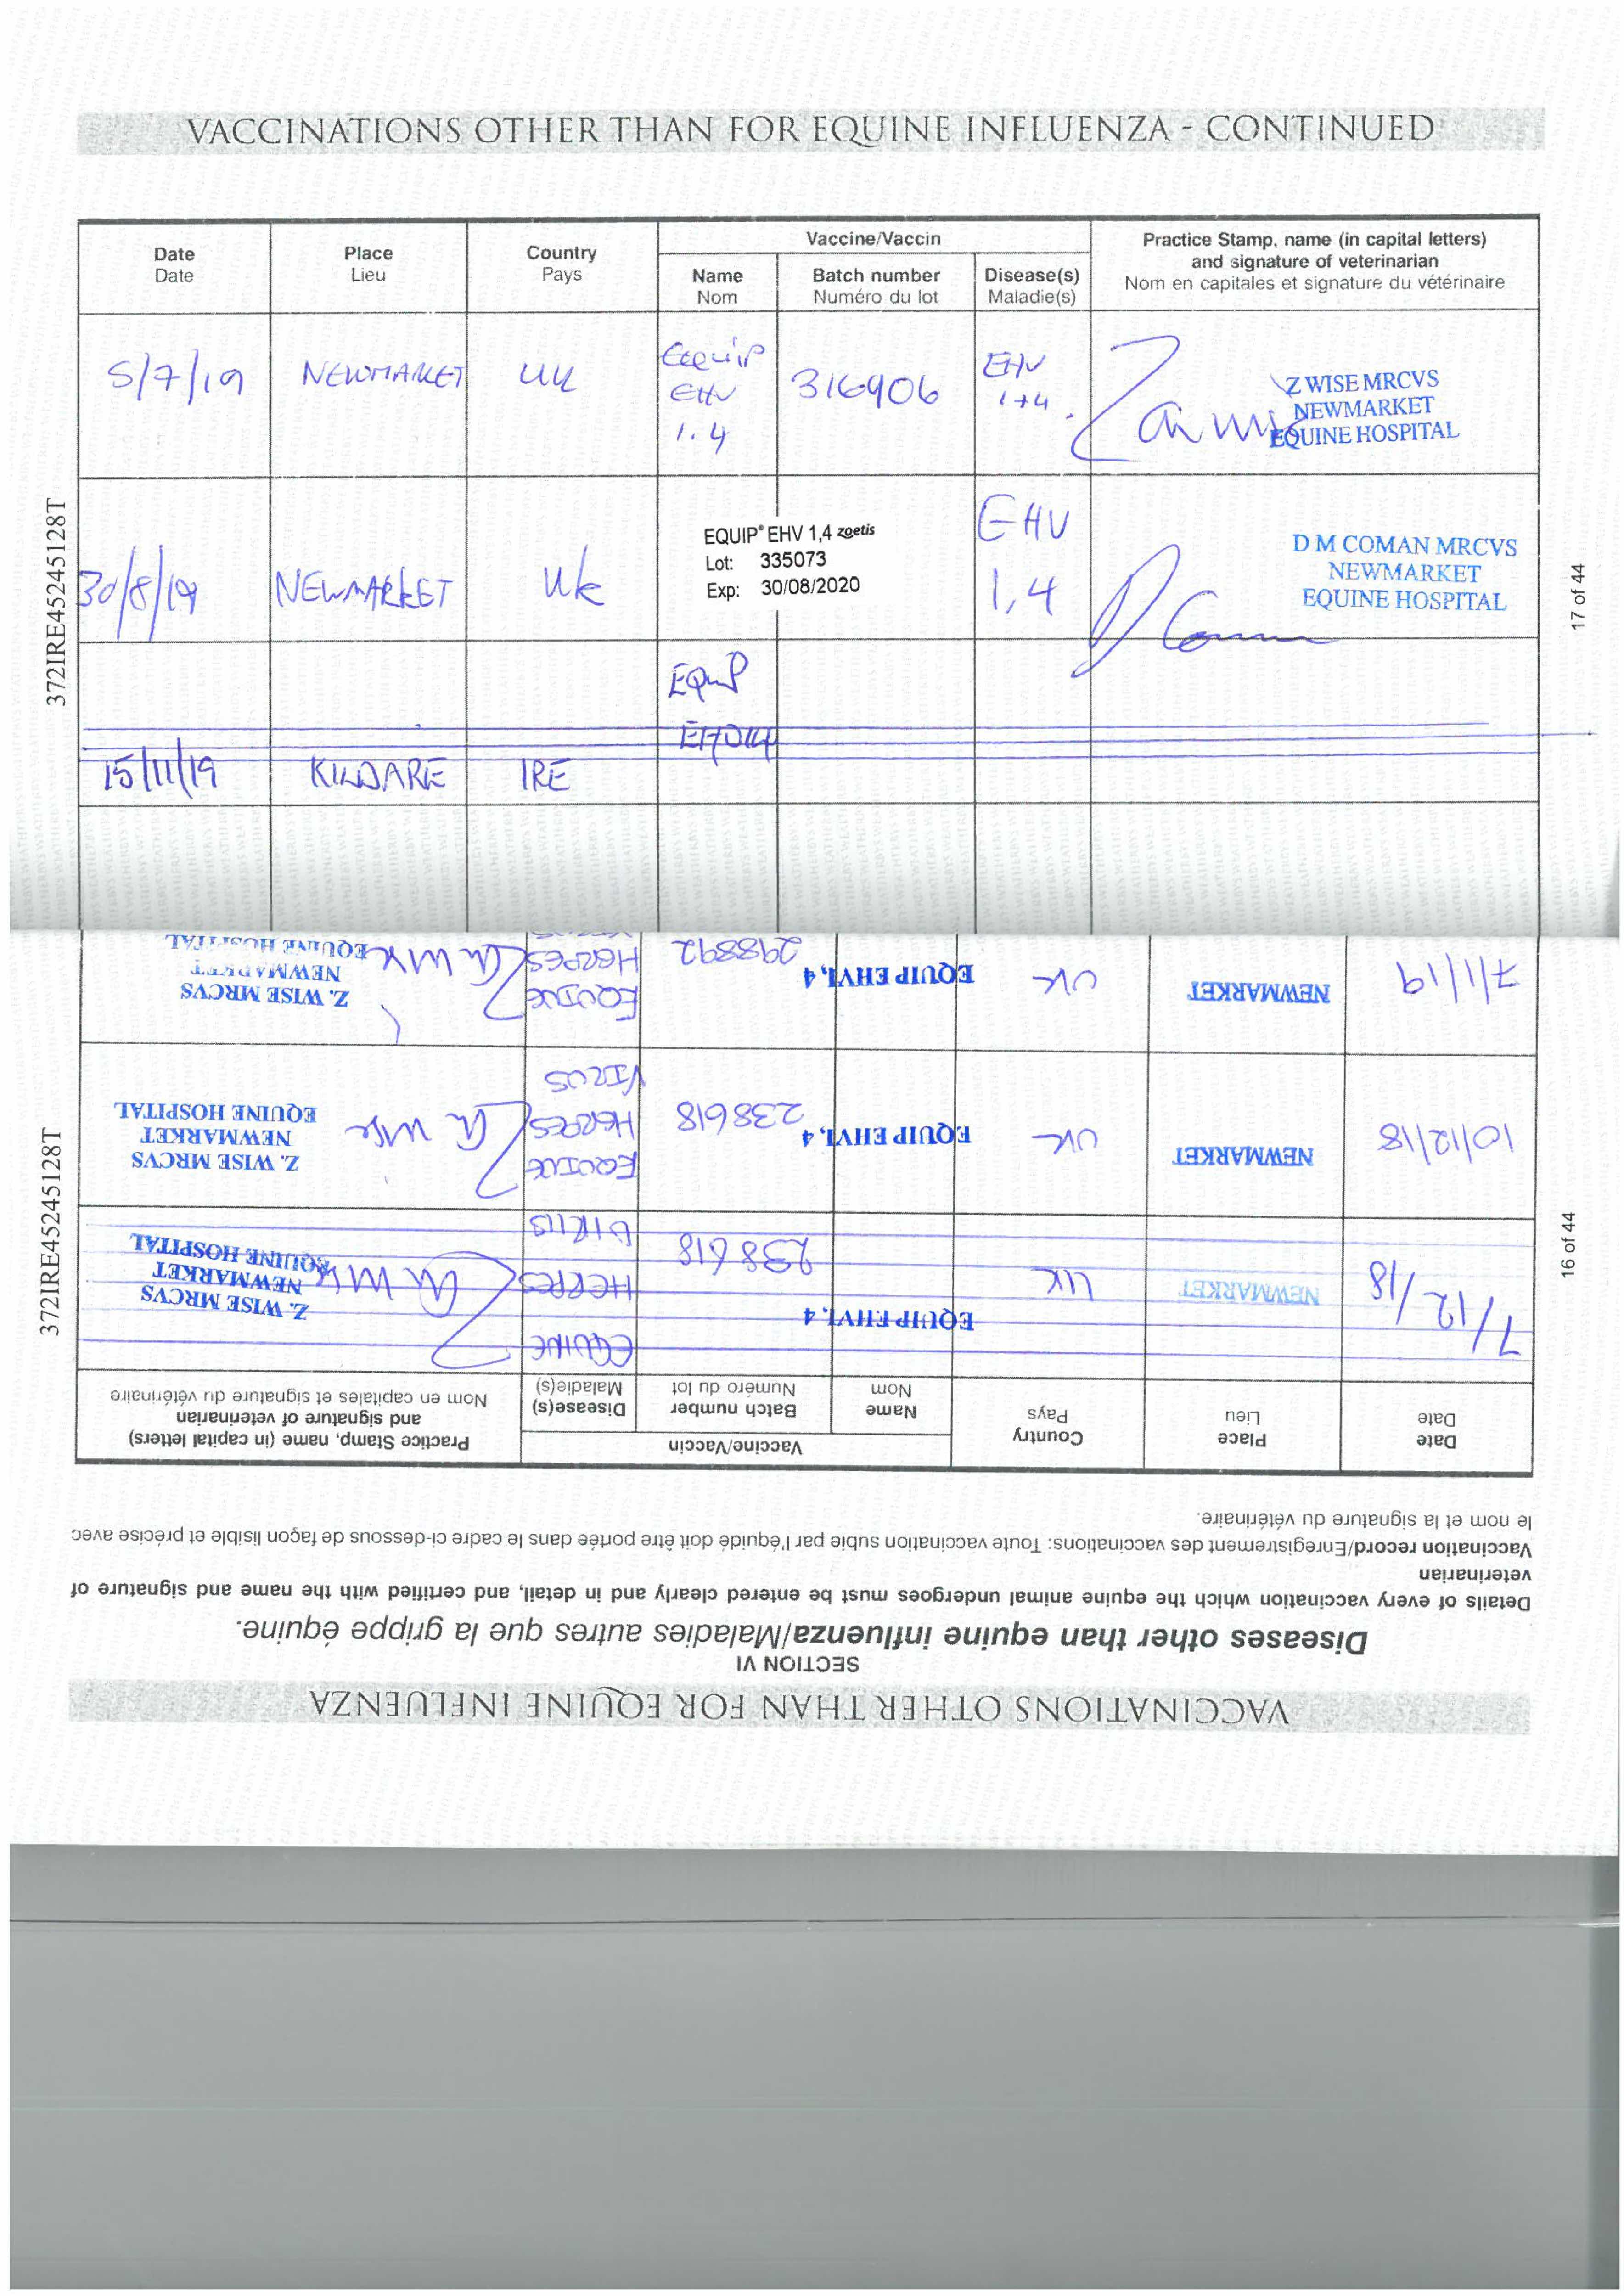 VACCINATIONS OTHER THAN FOR EQUINE INFLUENZA - CONTINUED
Date
Date
Place
Lieu
Country
Pays
Vaccine/Vaccin
Name
Nom
Batch number
Numéro du lot
Disease(s)
Maladie(s)
Practice Stamp, name (in capital letters)
and signature of veterinarian
Nom en capitales et signature du vétérinaire
5/7/19
NEWMARKET
UK
Equip
EHV
1.4
316906
EHV
1+4
Z WISE MRCVS
NEWMARKET
EQUINE HOSPITAL
30/8/19
NEWMARKET
UK
EQUIP® EHV 1,4 zoetis
Lot: 335073
Exp: 30/08/2020
EHV
1,4
D Coman
D M COMAN MRCVS
NEWMARKET
EQUINE HOSPITAL
15/11/19
KILDARE
IRE
EQuiP
372IRE45245128T
17 of 44
VACCINATIONS OTHER THAN FOR EQUINE INFLUENZA
SECTION VI
Diseases other than equine influenza/Maladies autres que la grippe équine.
Details of every vaccination which the equine animal undergoes must be entered clearly and in detail, and certified with the name and signature of
veterinarian
Vaccination record/Enregistrement des vaccinations: Toute vaccination subie par l'équidé doit être portée dans le cadre ci-dessous de façon lisible et précise avec
le nom et la signature du vétérinaire.
Date
Date
Place
Lieu
Country
Pays
Vaccine/Vaccin
Name
Nom
Batch number
Numéro du lot
Disease(s)
Maladie(s)
Practice Stamp, name (in capital letters)
and signature of veterinarian
Nom en capitales et signature du vétérinaire
7/12/18
NEWMARKET
UK
EQUIP EHV1, 4
238618
EQUINE
HERPES
VIRUS
Z. WISE MRCVS
NEWMARKET
EQUINE HOSPITAL
10/12/18
NEWMARKET
UK
EQUIP EHV1, 4
238618
EQUINE
HERPES
VIRUS
Z. WISE MRCVS
NEWMARKET
EQUINE HOSPITAL
7/1/19
NEWMARKET
UK
EQUIP EHV1, 4
298892
EQUINE
HERPES
Z. WISE MRCVS
NEWMARKET
EQUINE HOSPITAL
372IRE45245128T
16 of 44